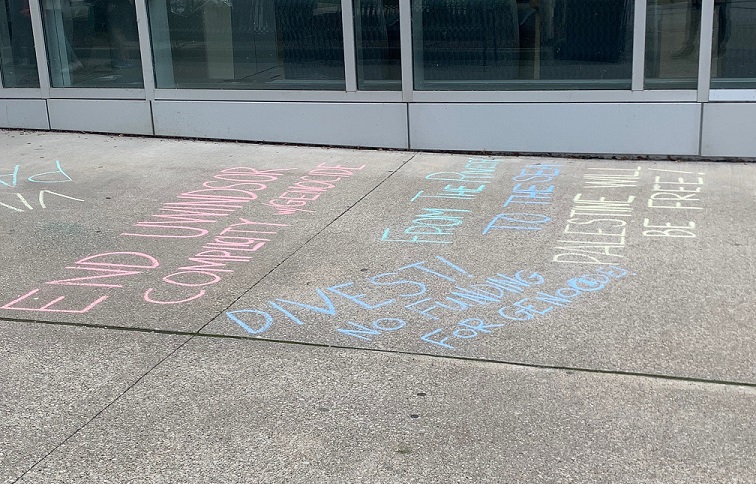 END UWINDSOR
COMPLICITY w/GENOCIDE
FROM THE RIVER
TO THE SEA
PALESTINE WILL
BE FREE!
DIVEST!
NO FUNDING
FOR GENOCIDE